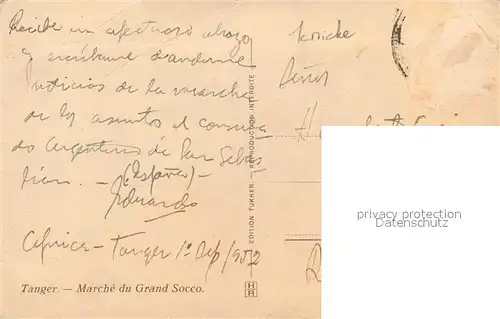 Recibe un afectuoso abrazo
y escribeme dandome
noticias de la marcha
de los asuntos al consula
do Argentino de San Sebas
tián. - (España) -
Eduardo
Africa - Tanger 1º Sep/902
Tanger. — Marché du Grand Socco.
EDITION TUKKER. — REPRODUCTION INTERDITE
Señor
privacy protection
Datenschutz